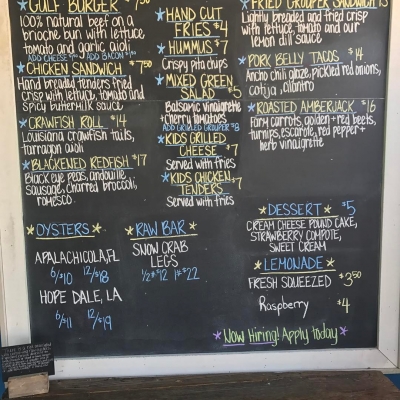 GULF BURGER $7.50
100% natural beef on a
brioche bun with lettuce,
tomato and garlic aioli
ADD CHEESE ADD BACON
CHICKEN SANDWICH $7.50
Hand breaded tenders fried
crisp with lettuce, tomato and
spicy buttermilk sauce
CRAWFISH ROLL $14
Louisiana crawfish tails,
tarragon aioli
BLACKENED REDFISH $17
Black eye peas, andouille
sausage, charred broccoli,
romesco
HAND CUT
FRIES $4
HUMMUS $7
Crispy pita chips
MIXED GREEN
SALAD $5
Balsamic vinaigrette
+ cherry tomatoes
ADD GRILLED GROUPER $8
KIDS GRILLED
CHEESE $7
Served with fries
KIDS CHICKEN
TENDERS $7
Served with fries
FRIED GROUPER SANDWICH 15
Lightly breaded and fried crisp
with lettuce, tomato and our
lemon dill sauce
PORK BELLY TACOS $14
Ancho chili glaze, pickled red onions,
cotija, cilantro
ROASTED AMBERJACK $16
Farm carrots, golden + red beets,
turnips, escarole, red pepper +
herb vinaigrette
OYSTERS
APALACHICOLA, FL
6/$10 12/$18
HOPE DALE, LA
6/$11 12/$19
RAW BAR
SNOW CRAB
LEGS
1/2# $12 1# $22
DESSERT $5
CREAM CHEESE POUND CAKE,
STRAWBERRY COMPOTE,
SWEET CREAM
LEMONADE
FRESH SQUEEZED $3.50
Raspberry $4
Now Hiring! Apply today